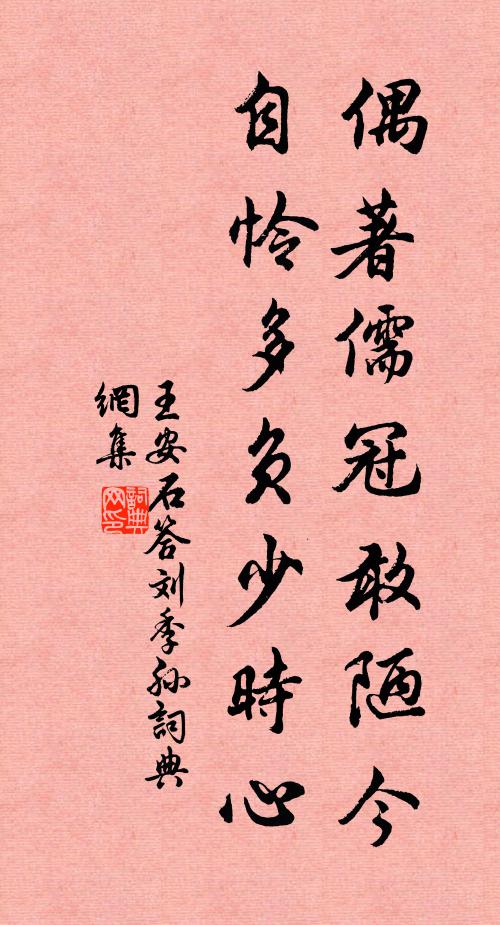 偶著儒冠敢陋今
自怜多负少時心
王安石答刘季孙詞典
網集
詞典
网印